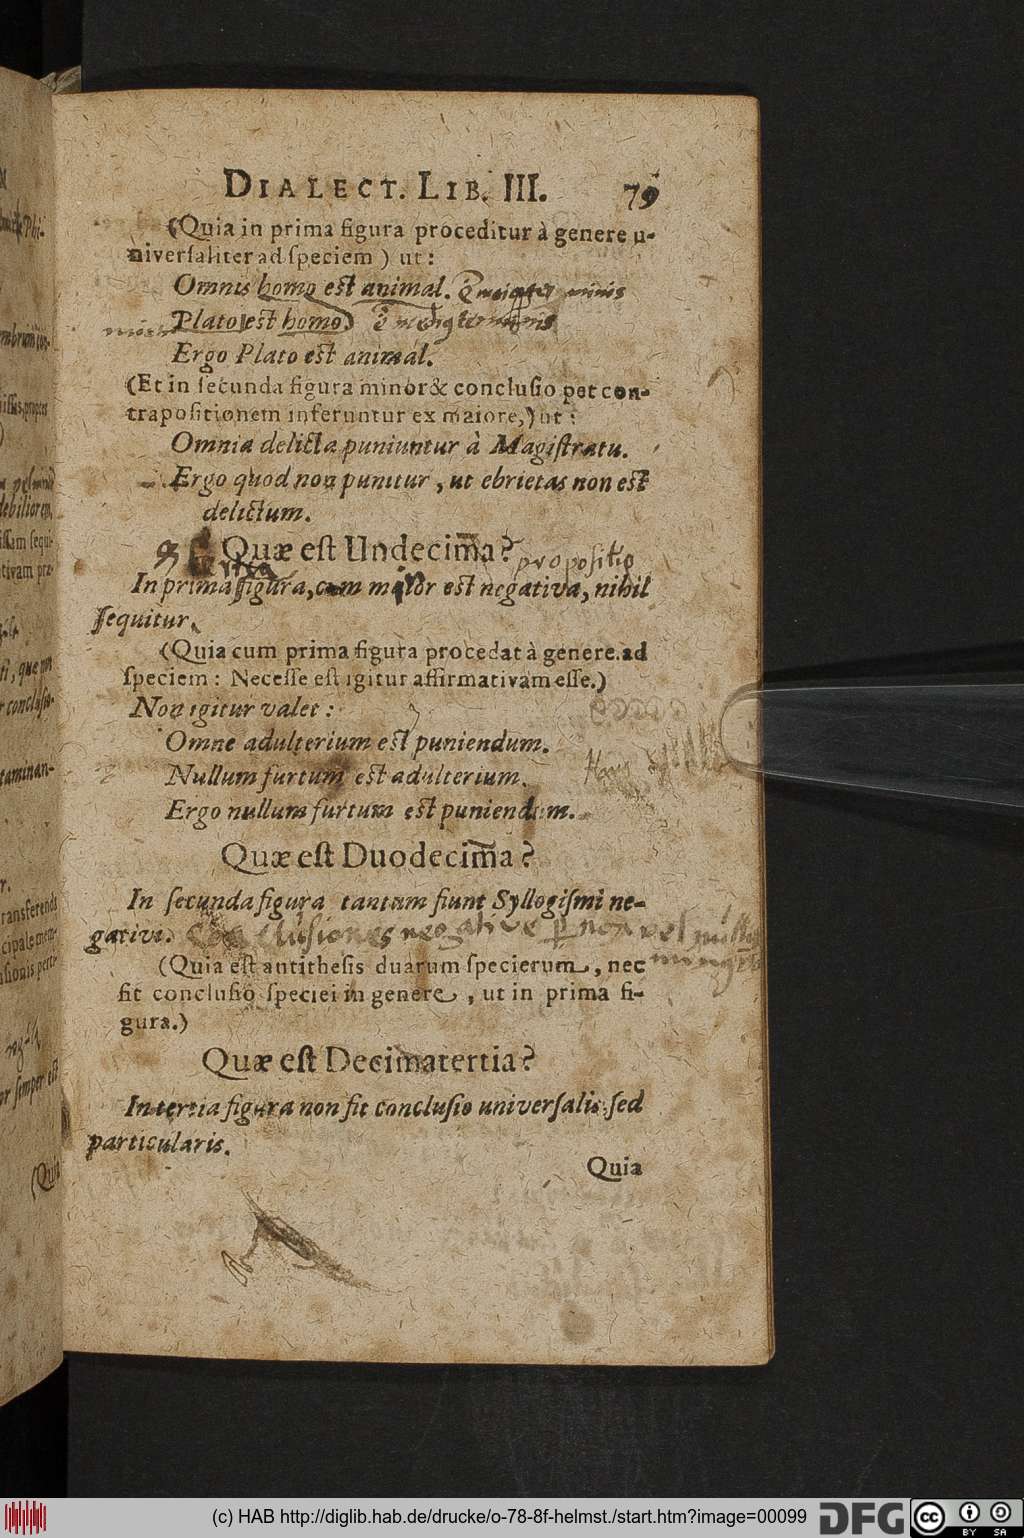 DIALECT. LIB. III. 79
(Quia in prima figura proceditur à genere u-
niversaliter ad speciem) ut:
Omnis homo est animal.
Plato est homo
Ergo Plato est animal.
(Et in secunda figura minor & conclusio per con-
trapositionem inferuntur ex maiore,) ut:
Omnia delicta puniuntur à Magistratu.
Ergo quod non punitur, ut ebrietas non est
delictum.
Quæ est Undecima?
propositio
In prima figura, cum maior est negativa, nihil
sequitur.
(Quia cum prima figura procedat à genere ad
speciem: Necesse est igitur affirmativam esse.)
Non igitur valet:
Omne adulterium est puniendum.
Nullum furtum est adulterium.
Ergo nullum furtum est puniendum.
Quæ est Duodecim̄a?
In secunda figura tantum fiunt Syllogismi ne-
gativi.
(Quia est antithesis duarum specierum, nec
fit conclusio speciei in genere, ut in prima fi-
gura.)
Quæ est Decimatertia?
In tertia figura non fit conclusio universalis sed
particularis.
Quia
(c) HAB http://diglib.hab.de/drucke/o-78-8f-helmst./start.htm?image=00099
DFG
cc BY SA